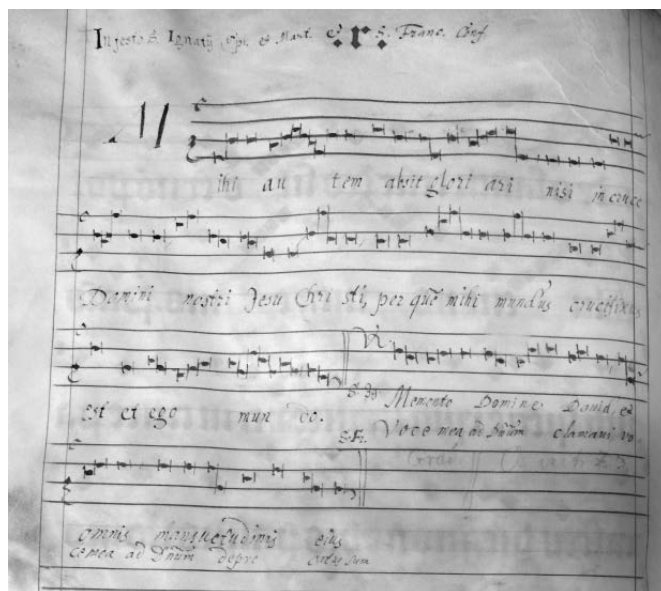 In festo S. Ignatij Epi. et Mart. et S. Franc. Conf.
Mihi au tem absit glori ari nisi in cruce
Domini nostri Jesu Chri sti, per quē mihi mundus crucifixus
est et ego mun do.
Memento Domine David, et
Voce mea ad Dnūm clamavi vo
omnis mansuetudinis eius
ce mea ad Dnūm depre catus sum